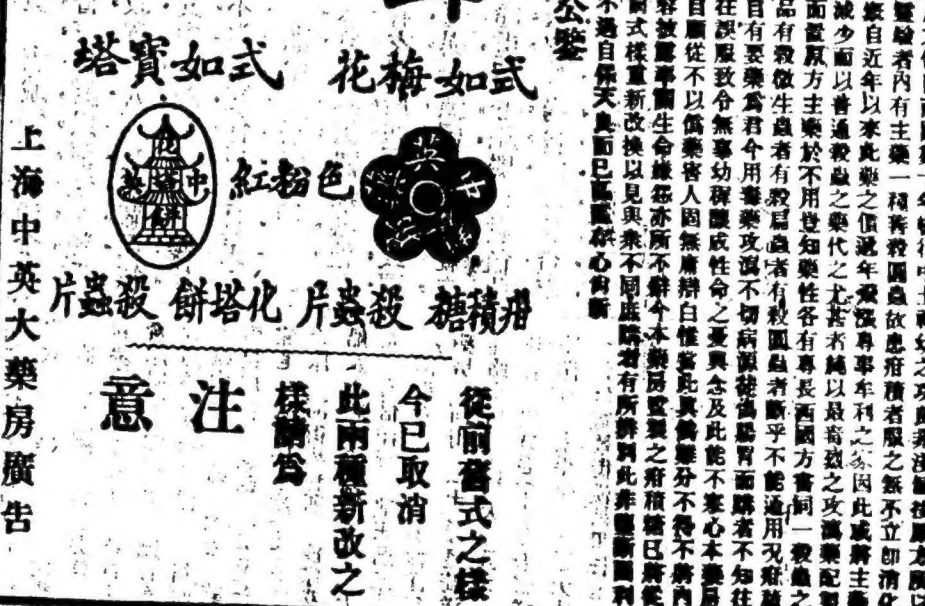 靈驗者內有主藥一種善殺圓蟲故患疳積者服之無不立即消化
自近年以來此藥之價逐年飛漲專事牟利之 因此咸將主藥
減少而以普通殺蟲之藥代之尤甚者純以最 烈之攻瀉藥配製
面置原方主藥於不用豈知藥性各有專長西國方書同一殺蟲之
品有殺微生蟲者有殺扁蟲者有殺圓蟲者斷乎不能通用况疳積
自有要藥爲君今用毒藥攻瀉不切病源徒傷腸胃而購者不知往
往誤服致令無辜幼稚釀成性命之憂興念及此能不寒心本藥房
自願從不以僞藥害人固無庸辯白惟當此眞僞難分不得不將內
容披露事關生命嫌怨亦所不辭今本藥房監製之疳積糖已將從
前式樣重新改換以見與衆不同庶購者有所辨別此非壟斷圖利
不過自保天良而已區區存心尚祈
公鑒
式如梅花
式如寶塔
色粉紅
英
中
中
英
化
塔
餅
疳積糖
殺蟲片
化塔餅
殺蟲片
從前舊式之樣
今已取消
此兩種新改之
樣請爲
注意
上海中英大藥房廣告